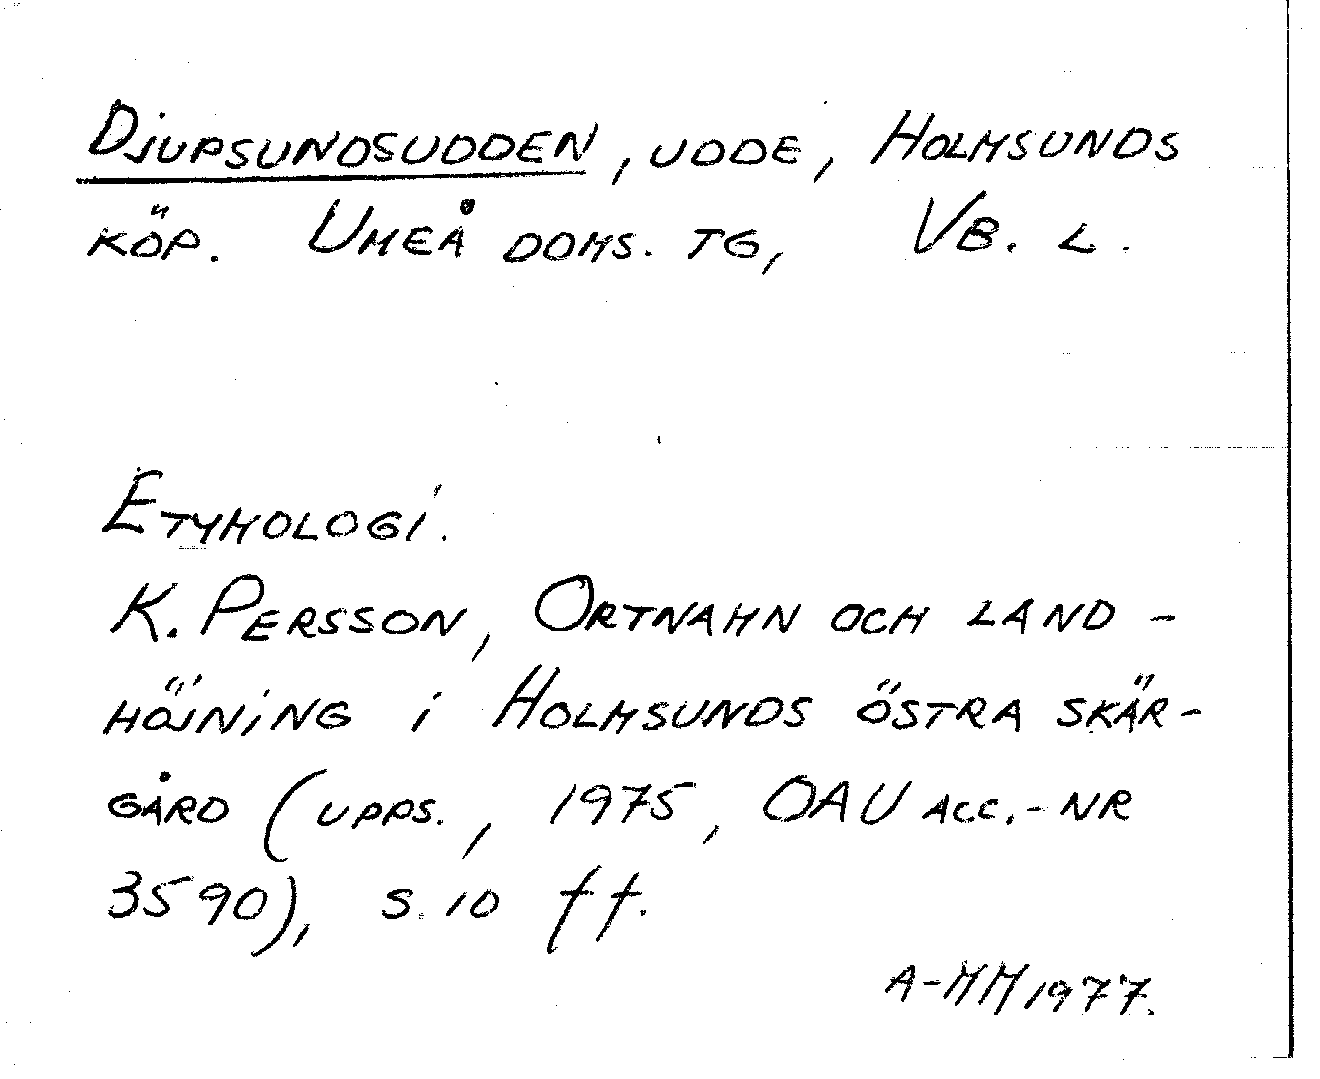 DJUPSUNDSUDDEN, UDDE, HOLMSUNDS
KÖP. UMEÅ DOMS. TG, VB. L.
ETYMOLOGI.
K. PERSSON, ORTNAMN OCH LAND-
HÖJNING I HOLMSUNDS ÖSTRA SKÄR-
GÅRD (UPPS., 1975, OAU ACC.-NR
3590), S. 10 ff.
A-MM 1977.